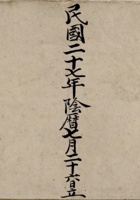 民國二十七年陰曆七月二十六日立